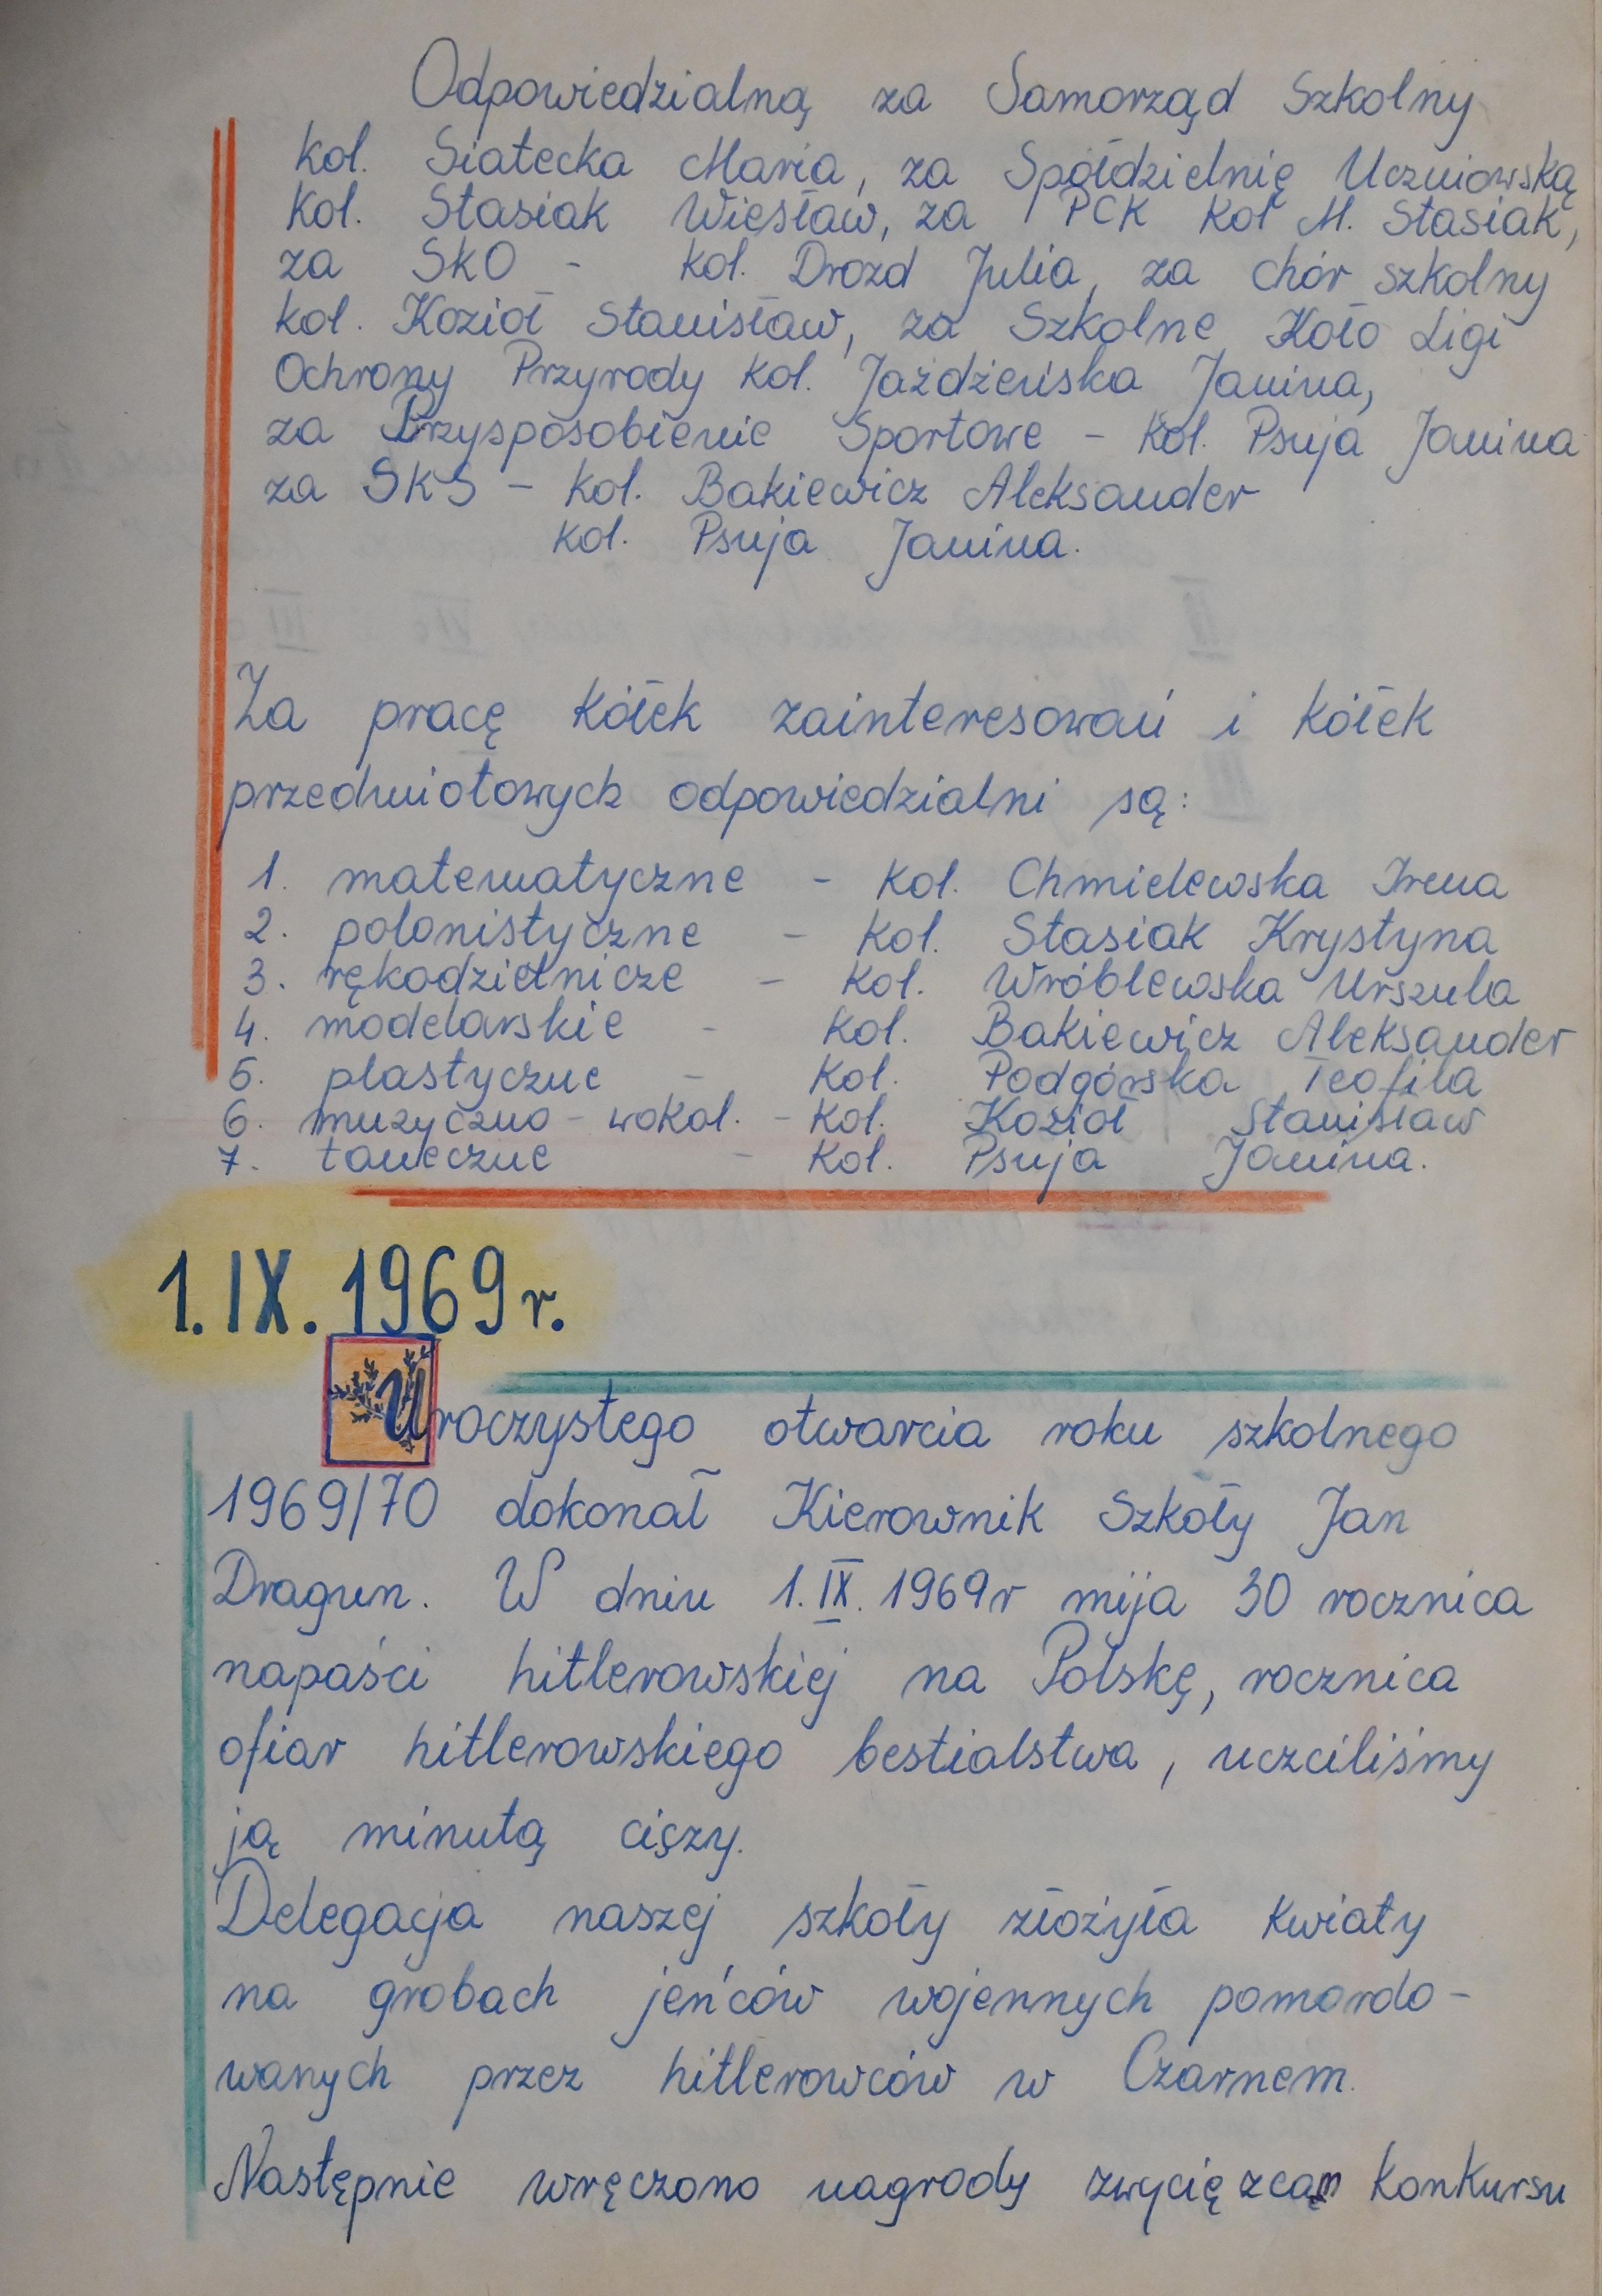 Odpowiedzialną za Samorząd Szkolny
kol. Siatecka Maria, za Spółdzielnię Uczniowską
kol. Stasiak Wiesław, za PCK kol M. Stasiak,
za SKO - kol. Drozd Julia, za chór szkolny
kol. Kozioł Stanisław, za Szkolne Koło Ligi
Ochrony Przyrody kol. Jażdżeńska Janina,
za Przysposobienie Sportowe - kol. Psuja Janina
za SKS - kol. Bakiewicz Aleksander
kol. Psuja Janina.
Za pracę kółek zainteresowań i kółek
przedmiotowych odpowiedzialni są:
1. matematyczne - kol. Chmielewska Irena
2. polonistyczne - kol. Stasiak Krystyna
3. rękodzielnicze - kol. Wróblewska Urszula
4. modelarskie - kol. Bakiewicz Aleksander
5. plastyczne - kol. Podgórska Teofila
6. muzyczno - wokal. - kol. Kozioł Stanisław
7. taneczne - kol. Psuja Janina.
1. IX. 1969 r.
Uroczystego otwarcia roku szkolnego
1969/70 dokonał Kierownik Szkoły Jan
Dragun. W dniu 1. IX. 1969 r mija 30 rocznica
napaści hitlerowskiej na Polskę, rocznica
ofiar hitlerowskiego bestialstwa, uczciliśmy
ją minutą ciszy.
Delegacja naszej szkoły złożyła kwiaty
na grobach jeńców wojennych pomordo-
wanych przez hitlerowców w Czarnem.
Następnie wręczono nagrody zwycięzcom konkursu